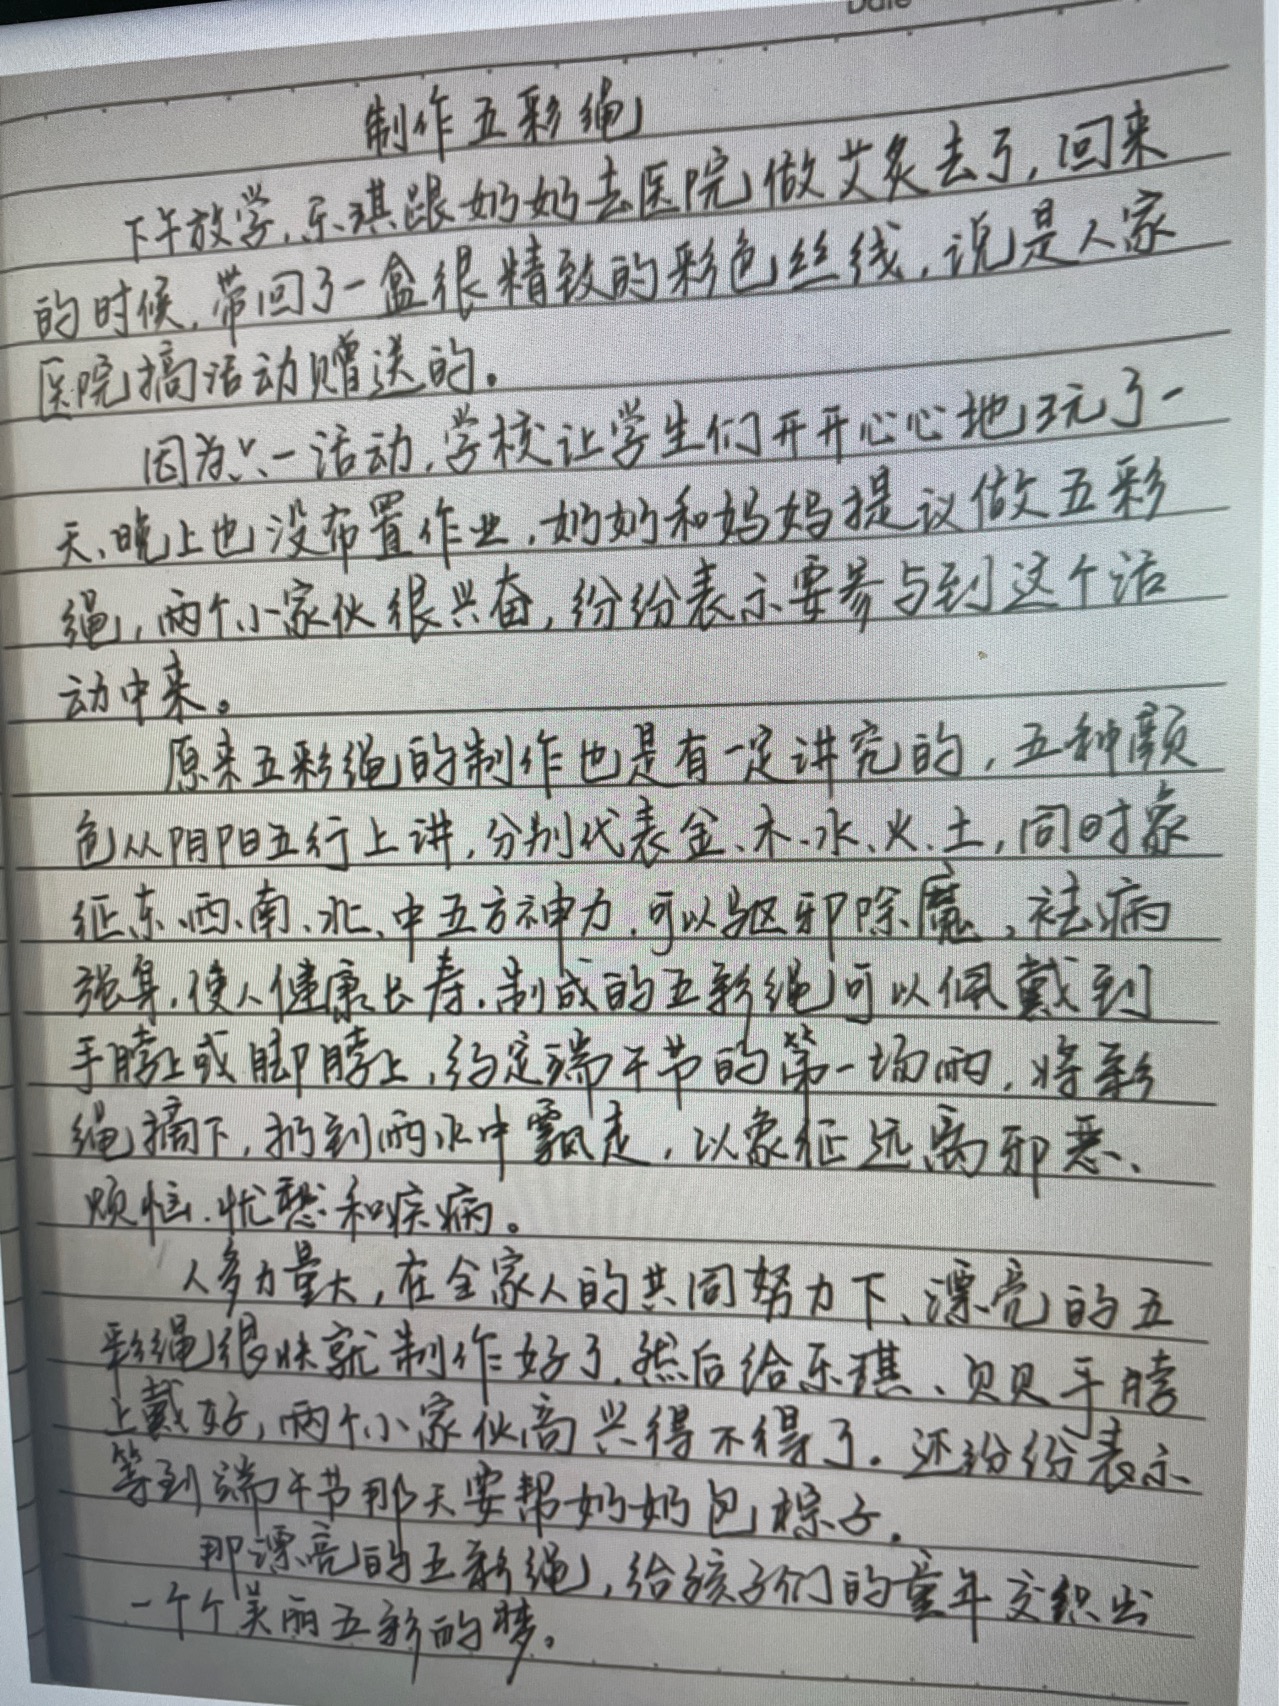 Date
制作五彩绳
下午放学,乐琪跟奶奶去医院做艾炙去了,回来
的时候,带回了一盒很精致的彩色丝线,说是人家
医院搞活动赠送的。
因为六一活动,学校让学生们开开心心地玩了一
天、晚上也没布置作业,奶奶和妈妈提议做五彩
绳,两个小家伙很兴奋,纷纷表示要参与到这个活
动中来。
原来五彩绳的制作也是有一定讲究的,五种颜
色从阴阳五行上讲,分别代表金、木、水、火、土,同时象
征东、西、南、北、中五方神力,可以驱邪除魔,祛病
强身,使人健康长寿,制成的五彩绳可以佩戴到
手膀上或脚膀上,约定端午节的第一场雨,将彩
绳摘下,扔到雨水中飘走,以象征远离邪恶、
烦恼、忧愁和疾病。
人多力量大,在全家人的共同努力下、漂亮的五
彩绳很快就制作好了,然后给乐琪、贝贝手膀
上戴好,两个小家伙高兴得不得了。还纷纷表示
等到端午节那天要帮奶奶包粽子。
那漂亮的五彩绳,给孩子们的童年交织出
一个个美丽五彩的梦。